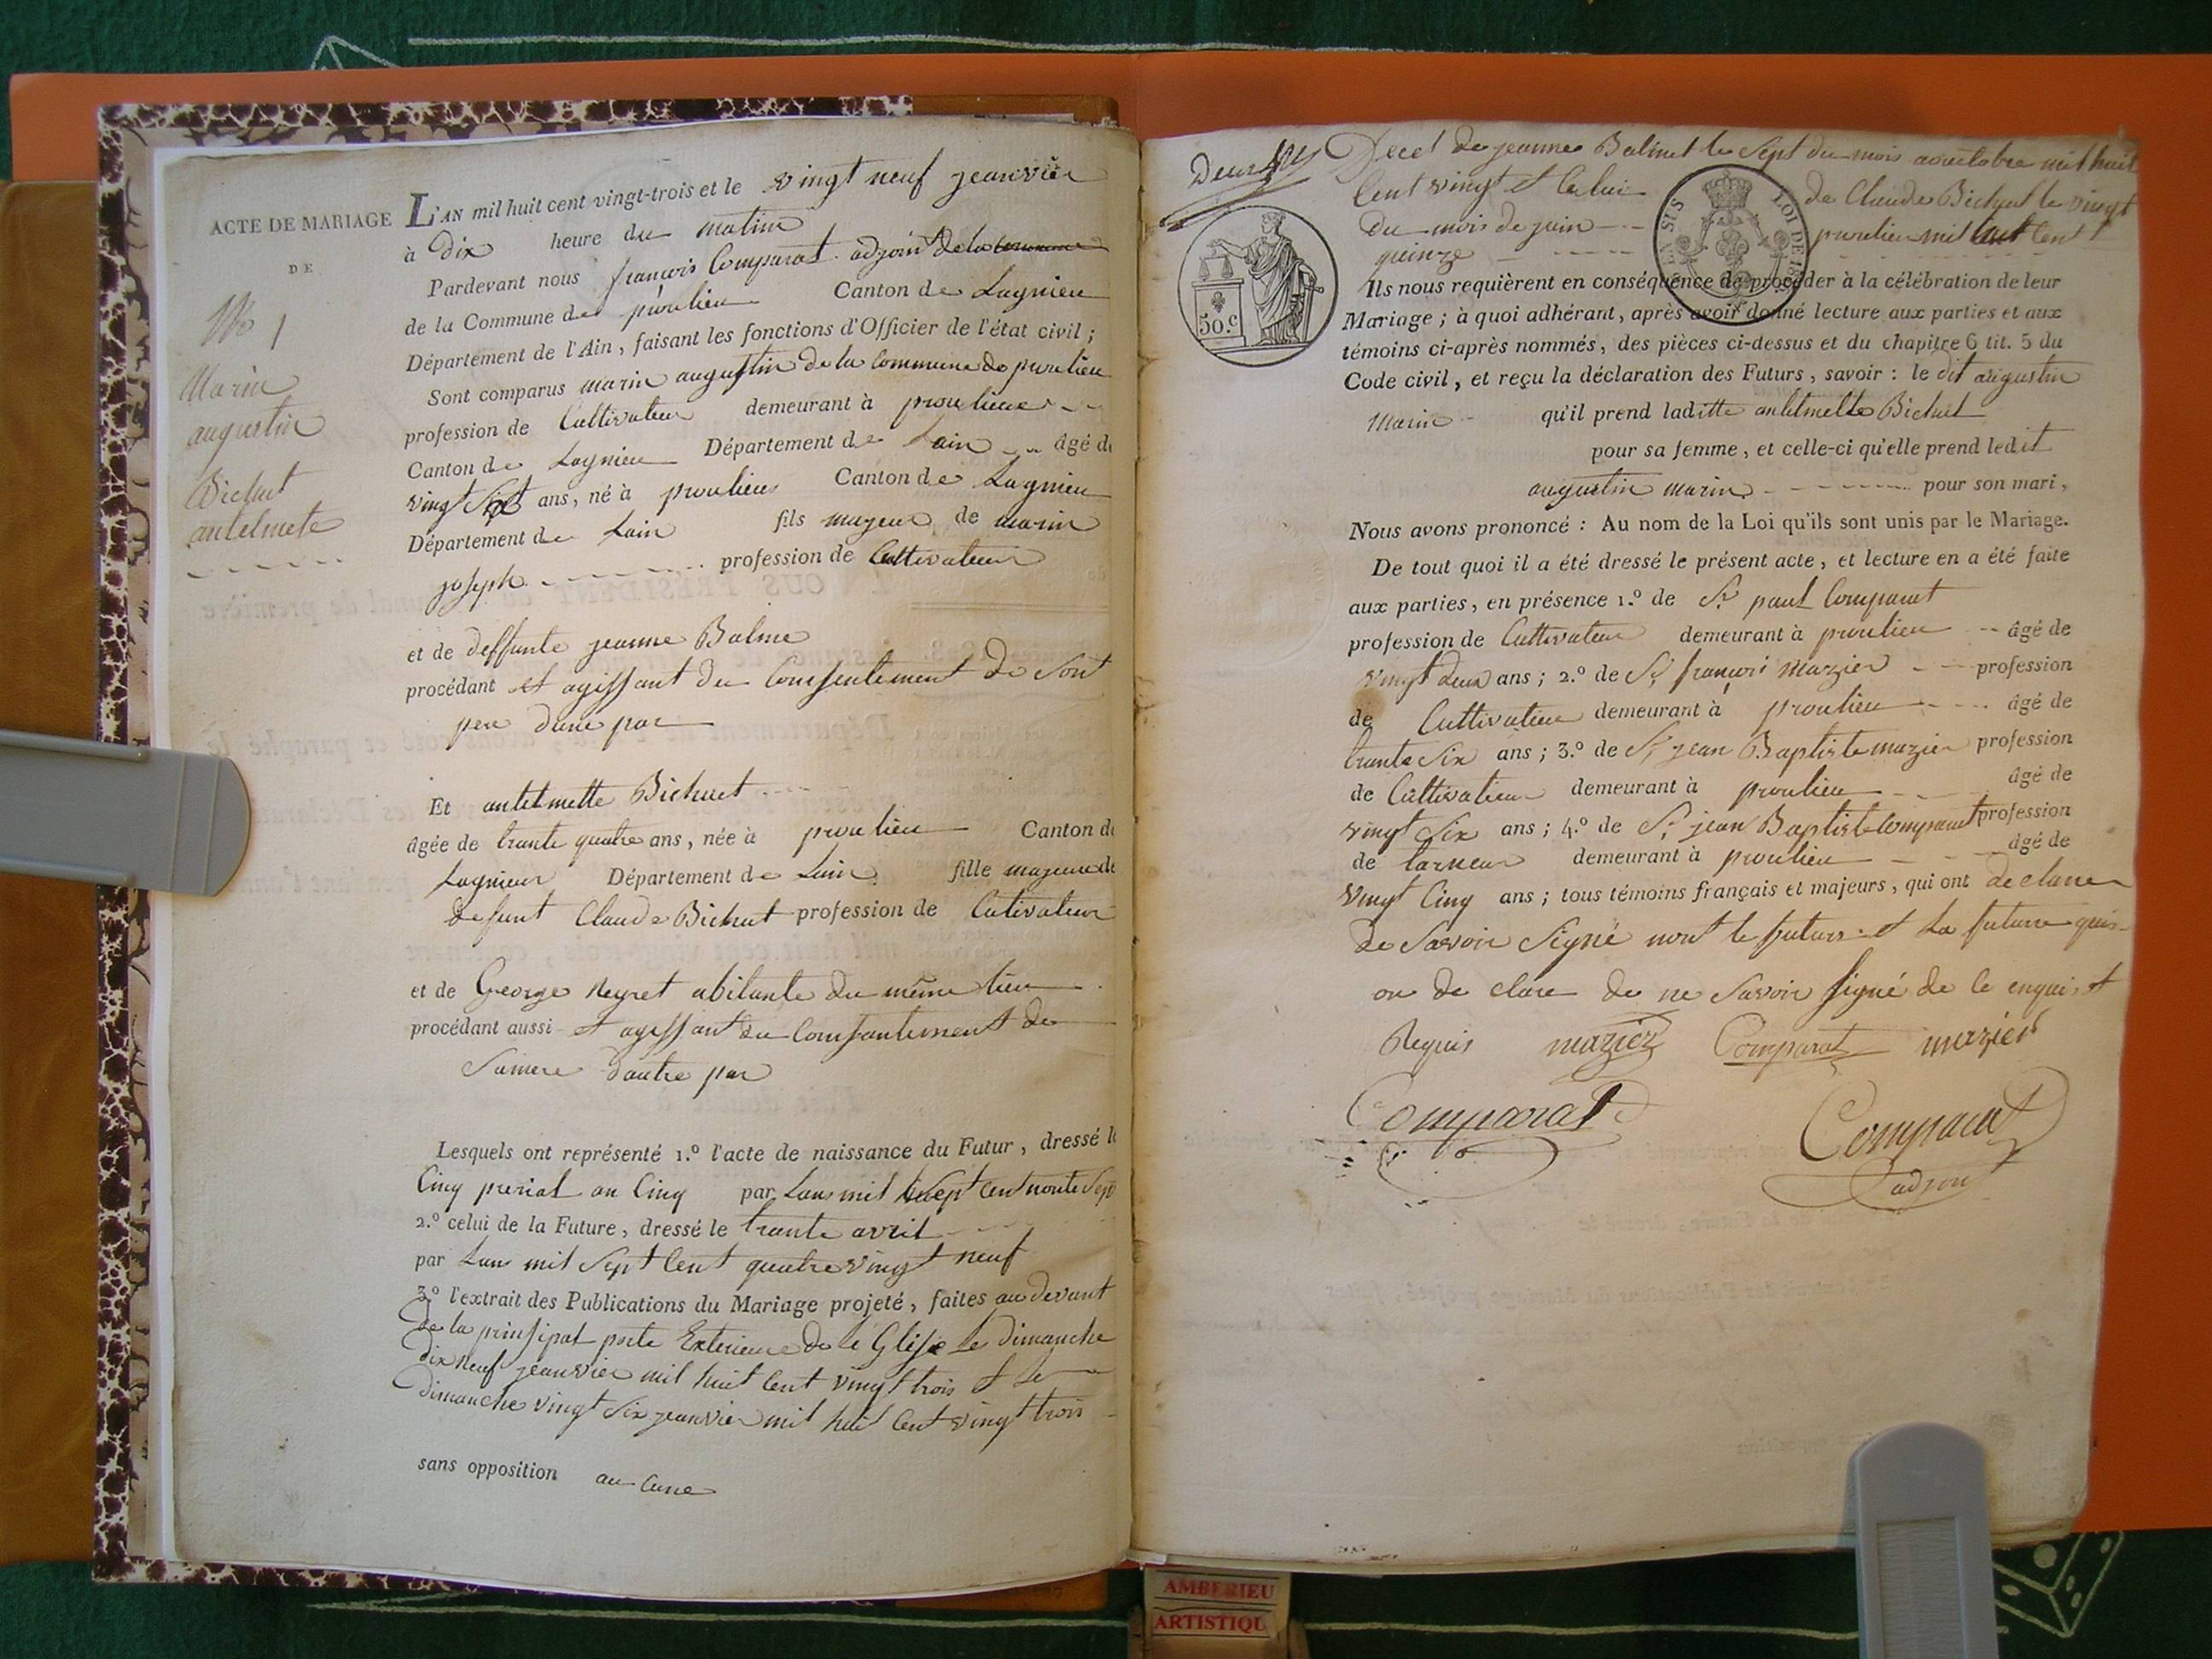 ACTE DE MARIAGE
DE
No 1
Marin
augustin
Bichuet
antelmete
L'AN mil huit cent vingt-trois et le vingt neuf jeanvier
à Dix heure du matin
Pardevant nous françois Comparat adjoint de la commune
de la Commune de proulieu Canton de Lagnieu
Département de l'Ain, faisant les fonctions d'Officier de l'état civil ;
Sont comparus marin augustin de la Commune de proulieu
profession de Cultivateur demeurant à proulieu
Canton de Lagnieu Département de Lain âgé de
vingt Six ans, né à proulieu Canton de Lagnieu
Département de Lain fils mageur de marin
joseph profession de Cultivateur
et de deffunte jeanne Balme
procédant et agissant du Consentement de Sont
pere dune par
Et antelmette Bichuet
âgée de trante quatre ans, née à proulieu Canton de
Lagnieu Département de Lain fille majeure de
defunt Claude Bichuet profession de Cutivateur
et de George Neyret abitante du même lieu
procédant aussi et agissant du Consantement de
Samere dautre par
Lesquels ont représenté 1.º l'acte de naissance du Futur, dressé le
Cinq prerial an Cinq par Lans mil Sept Cent nonte Sept
2.º celui de la Future, dressé le trante avril
par Lans mil Sept Cent quatre vingt neuf
3.º l'extrait des Publications du Mariage projeté, faites au devant
de la prinsipal porte Exterieure de le Glise Le dimanche
dix neuf jeanvier mil huit Cent vingt trois et Le
dimanche vingt Six jeanvier mil huit Cent vingt trois
sans opposition au Cune
Deux
Decet de jeanne Balmet le Sept du mois aouctobre mil huit
Cent vingt et Celui de Claude Bichuet le vingt
du mois de juin proulieu mil huit Cent
quinze
50 c
LOI DE 18
Ils nous requièrent en conséquence de procéder à la célébration de leur
Mariage ; à quoi adhérant, après avoir donné lecture aux parties et aux
témoins ci-après nommés, des pièces ci-dessus et du chapitre 6 tit. 5 du
Code civil, et reçu la déclaration des Futurs, savoir : le dit augustin
Marin qu'il prend laditte antelmette Bichuet
pour sa femme, et celle-ci qu'elle prend ledit
augustin marin pour son mari,
Nous avons prononcé : Au nom de la Loi qu'ils sont unis par le Mariage.
De tout quoi il a été dressé le présent acte, et lecture en a été faite
aux parties, en présence 1.º de Sr paul Comparat
profession de Cultivateur demeurant à proulieu âgé de
vingt deux ans ; 2.º de Sr françois mazier profession
de Cultivateur demeurant à proulieu âgé de
trante Six ans ; 3.º de Sr jean Baptiste mazier profession
de Cultivateur demeurant à proulieu âgé de
vingt Six ans ; 4.º de Sr jean Baptiste Comparat profession
de tarneur demeurant à proulieu âgé de
vingt Cinq ans ; tous témoins français et majeurs, qui ont de clarer
de Savoir Signé nont le futurs et La future quis
on de clare de ne Savoir signé de le enquis et
Requis mazier Comparat mazier
Comparat Comparat
adjoint
AMBERIEU
ARTISTIQU